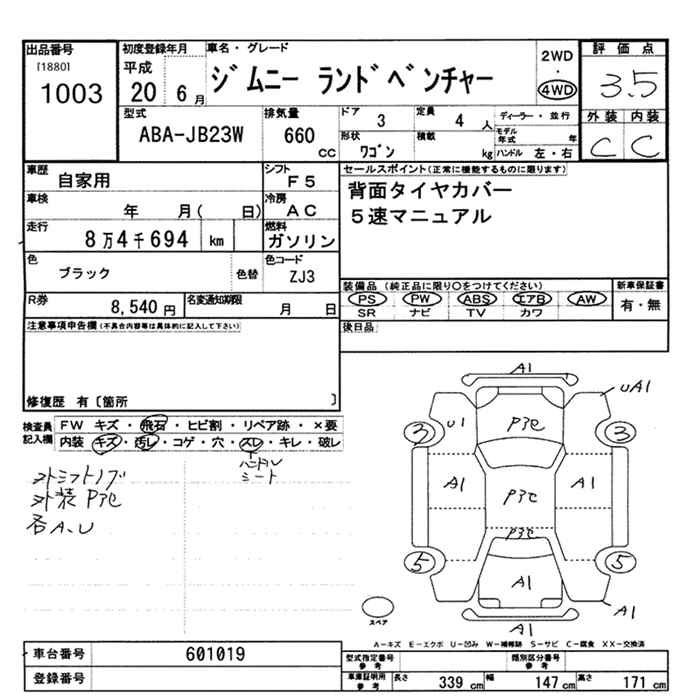 出品番号
[1880]
1003
初度登録年月
平成
20 6 月
車名・グレード
ジムニー ランドベンチャー
2WD
・
4WD
評価点
3.5
外装 内装
C C
型式
ABA-JB23W
排気量
660
CC
ドア
3
定員
4 人
ディーラー・並行
形状
ワゴン
積載
kg
モデル年式 年
ハンドル 左・右
車歴
自家用
シフト
F5
車検
年 月( 日)
冷房
AC
走行
8万4千694 km
燃料
ガソリン
色
ブラック
色替
色コード
ZJ3
R券
8,540 円
名変通知期限
月 日
セールスポイント(正常に機能するものに限ります)
背面タイヤカバー
5速マニュアル
装備品(純正品に限り○をつけてください)
PS PW ABS エアB AW
SR ナビ TV カワ
新車保証書
有・無
後日品
注意事項申告欄(不具合内容等は具体的に記入して下さい)
修復歴 有〔箇所 〕
検査員記入欄
FW キズ・飛石・ヒビ割・リペア跡・×要
内装 キズ・汚レ・コゲ・穴・スレ・キレ・破レ
ハンドル
シート
外シフトノブ
外装 P3セ
各A、U
A1
UA1
U1
P3セ
3
3
A1
P3セ
A1
P3セ
5
5
A1
A1
A1
スペア
A-キズ E-エクボ U-凹み W-補修跡 S-サビ C-腐食 XX-交換済
車台番号
601019
登録番号
型式指定番号
参考
類別区分番号
参考
車庫証明用
参考
長さ 339 cm
幅 147 cm
高さ 171 cm